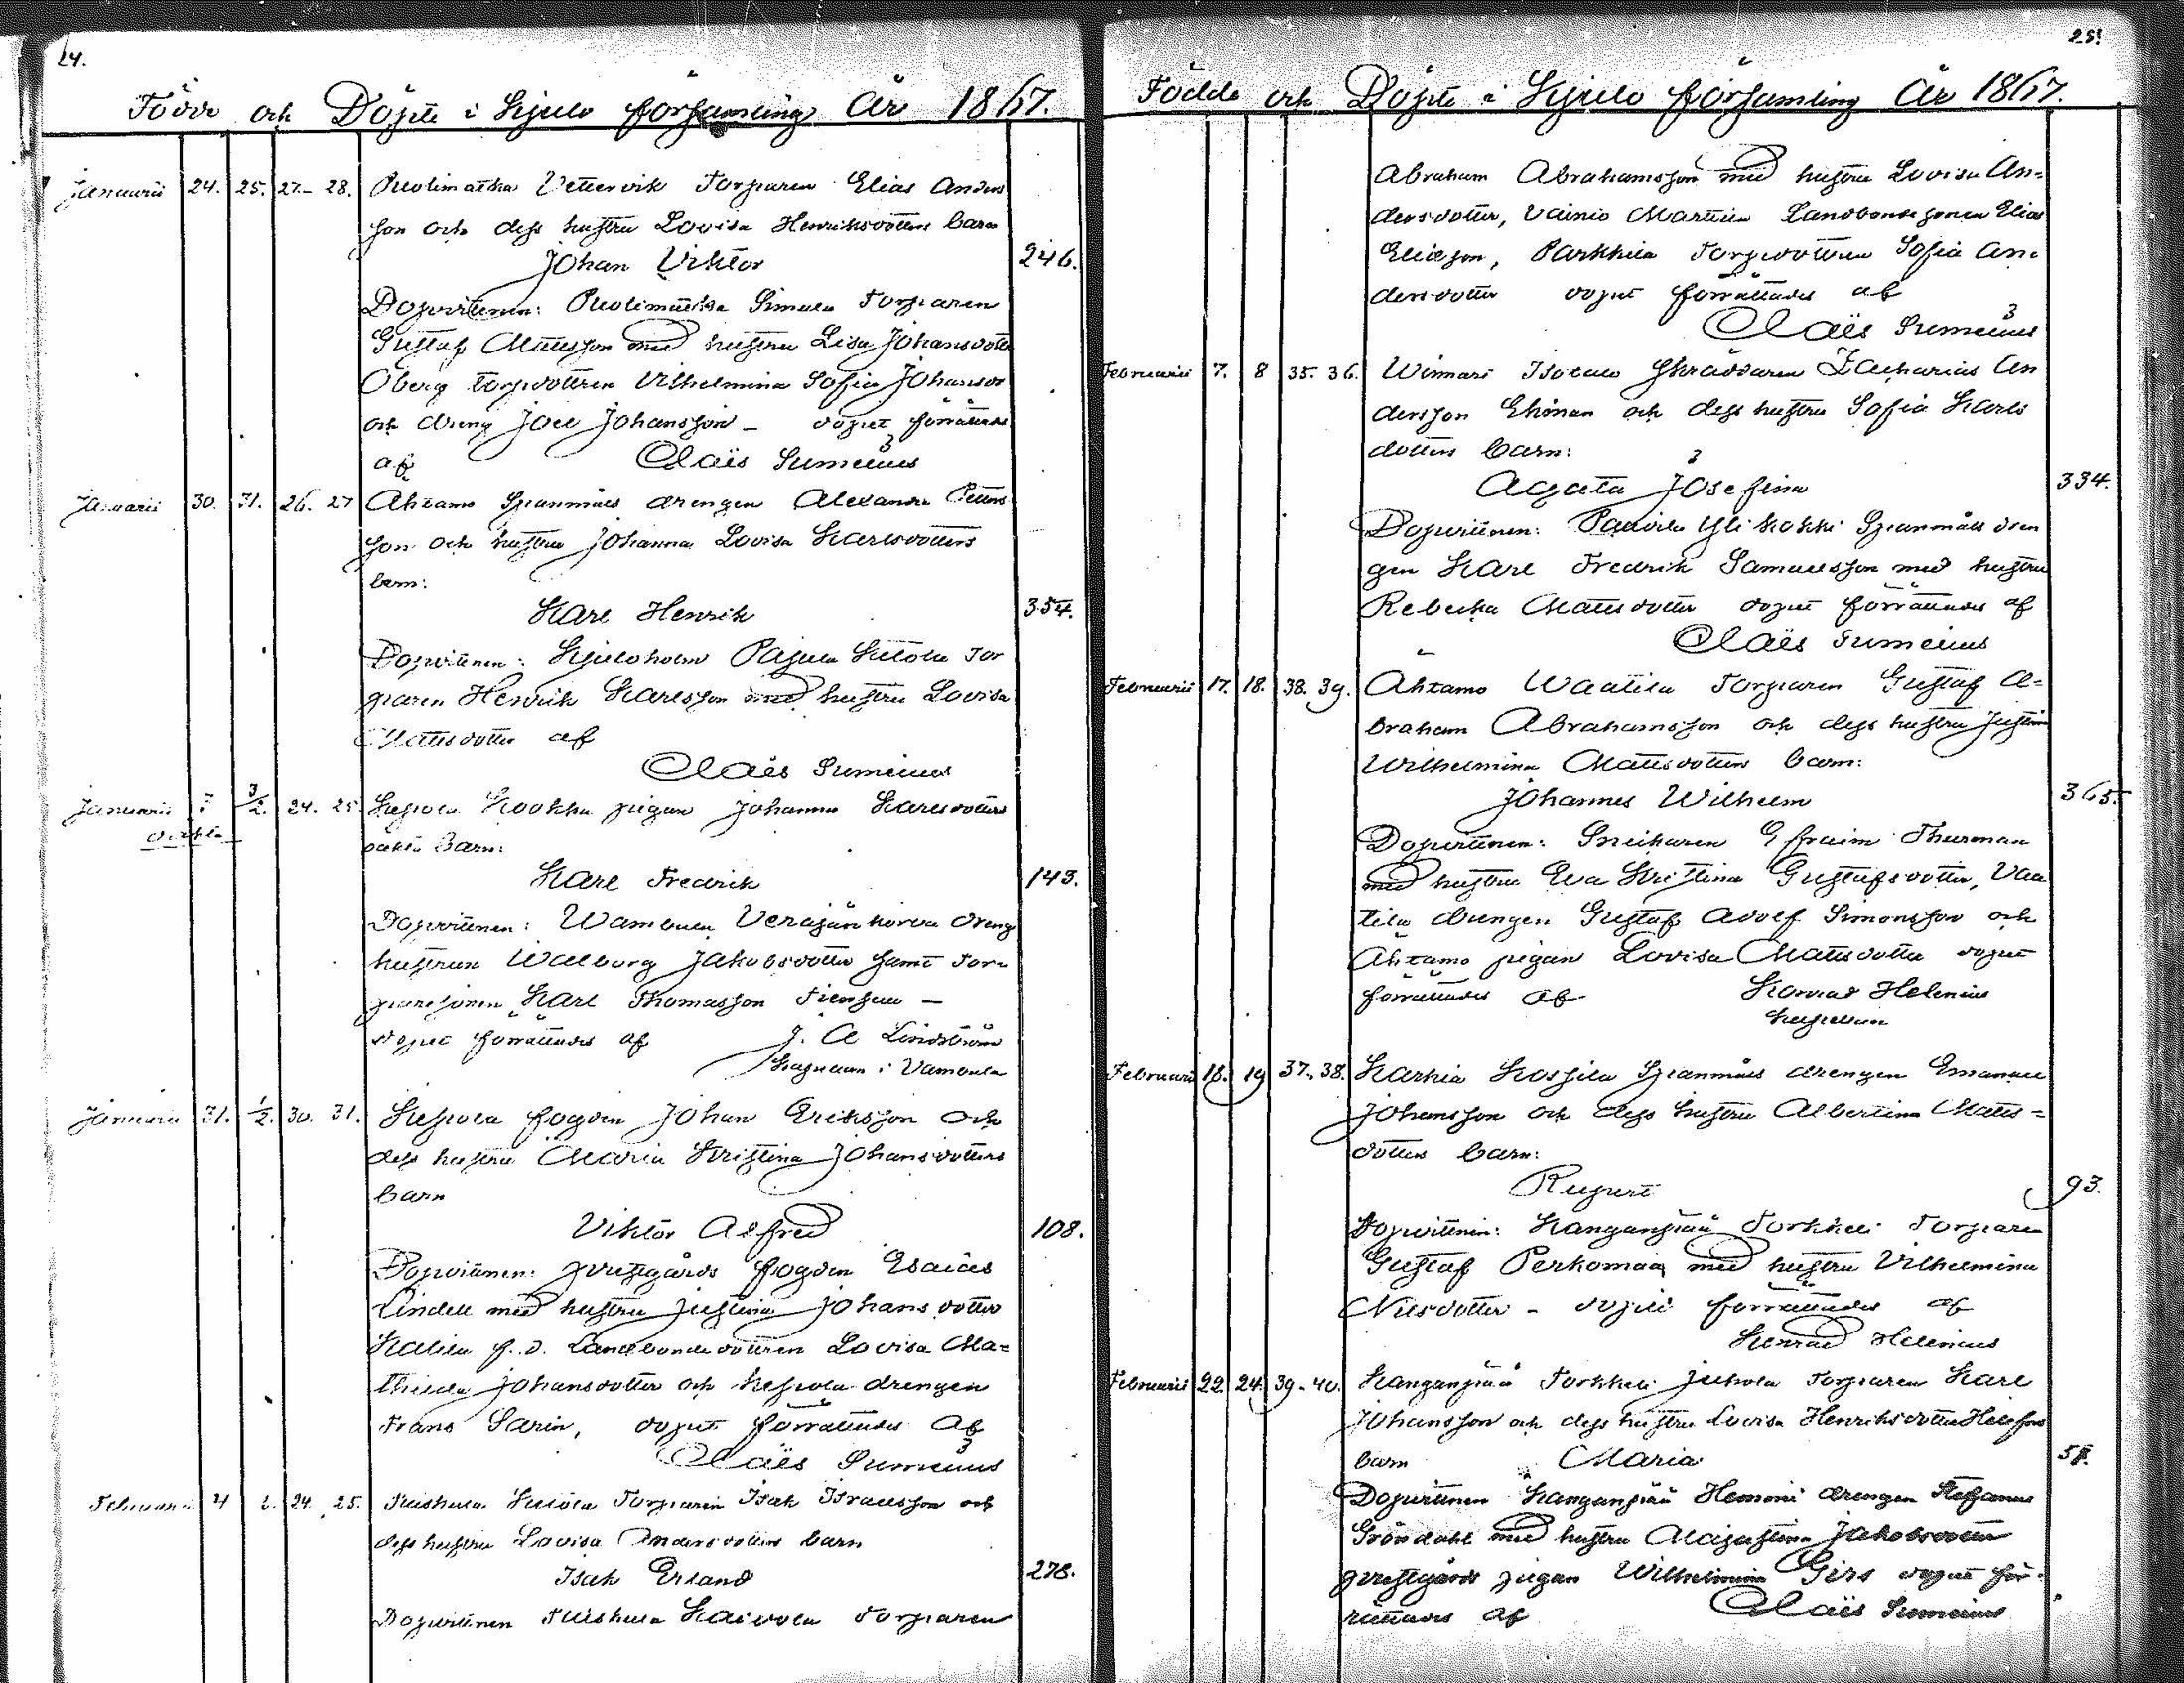 24.
Födde och Döpte i Kjulo församling År 1867.
Januarii 24. 25. 27.- 28. Puolimatka Vettervik Torparen Elias Anders
son och dess hustru Lovisa Henriksdotters barn
Johan Viktor 246.
Dopvittnen: Puolimatka Simula Torparen
Gustaf Mattsson med hustru Lisa Johansdotter
Öberg torpdottren Vilhelmina Sofia Johansd
och dreng Joel Johansson - dopet förrättades
af Claës Sumelius
Januarii 30. 31. 26. 27 Ahtamo Spanmåls drengen Alexander Petters
son och hustru Johanna Lovisa Karlsdotters
barn:
Karl Henrik 354.
Dopvittnen: Kjuloholm Pajula Torparen Henrik Karlsson med hustru Lovisa
Mattsdotter af
Claës Sumelius
Januarii ? 3/2. 24. 25 Kepola pigan Johanna Karlsdotters
oäkta barn:
oäkta
Karl Fredrik 143.
Dopvittnen: Wambula Dreng
hustrun Walborg Jakobsdotter samt Tor-
paresonen Karl Thomasson -
dopet förrättades af J. A Lindström
Kaplan i Vambula
Januarii 31. 1/2. 30. 31. Kepola fogden Johan Eriksson och
dess hustru Maria Kristina Johansdotters
barn
Viktor Alfred 108.
Dopvittnen: prestgårds fogden Esaias
Lindell med hustru Justina Johansdotter
f.d. Landbondedottren Lovisa Ma-
thilda Johansdotter och Kepola drengen
Frans Sarin, dopet förrättades Af
Claës Sumelius
Februarii 4 24. 25. Torparen Isak Israelsson och
dess hustru Lovisa Andersdotters barn
Isak Erland 278.
Dopvittnen Torparen
25.
Födde och Döpte i Kjulo församling År 1867.
Abraham Abrahamsson med hustru Lovisa An=
dersdotter, Vainio Marttila Landbonde sonen Elias
Eliasson, Parkkila Torpdottren Sofia An=
dersdotter dopet förrättades af
Claës Sumelius
Februarii 7. 8 35. 36. Winnari Isotalo Skräddaren Zacharias An
dersson Ekman och dess hustru Sofia Karls
dotters barn:
Agata Josefina 334.
Dopvittnen: Paavila Yli Kokki Spanmåls dren
gen Karl Fredrik Samuelsson med hustru
Rebecka Mattsdotter dopet förrättades af
Claës Sumelius
Februarii 17. 18. 38. 39. Ahtamo Waatila Torparen Gustaf A=
braham Abrahamsson och dess hustru Justina
Wilhelmina Mattsdotters barn:
Johannes Wilhelm 365.
Dopvittnen: Snickaren Efraim Thurman
med hustru Eva Kristina Gustafsdotter, Vaa
tila drengen Gustaf Adolf Simonsson och
Ahtamo pigan Lovisa Mattsdotter dopet
förrättades af Konrad Helenius
Kapellan
Februarii 18. 19 37. 38. Karhia Kossila Spanmåls drengen Emanuel
Johansson och dess hustru Albertina Matts=
dotters barn:
Rupert 93.
Dopvittnen: Kanganpää Torkkeli Torparen
Gustaf Perkomaa med hustru Vilhelmina
Nilsdotter - dopet förrättades af
Konrad Helenius
Februarii 22. 24. 39 - 40. Kanganpää Torkkeli Juhola Torparen Karl
Johansson och dess hustru Lovisa Henriksdotter
barn Maria 58.
Dopvittnen Kanganpää Hemmi drengen Stefanus
Gröndahl med hustru Majastina Jakobsdotter
prestgårds pigan Wilhelmina Girs dopet för-
rättades af Claës Sumelius